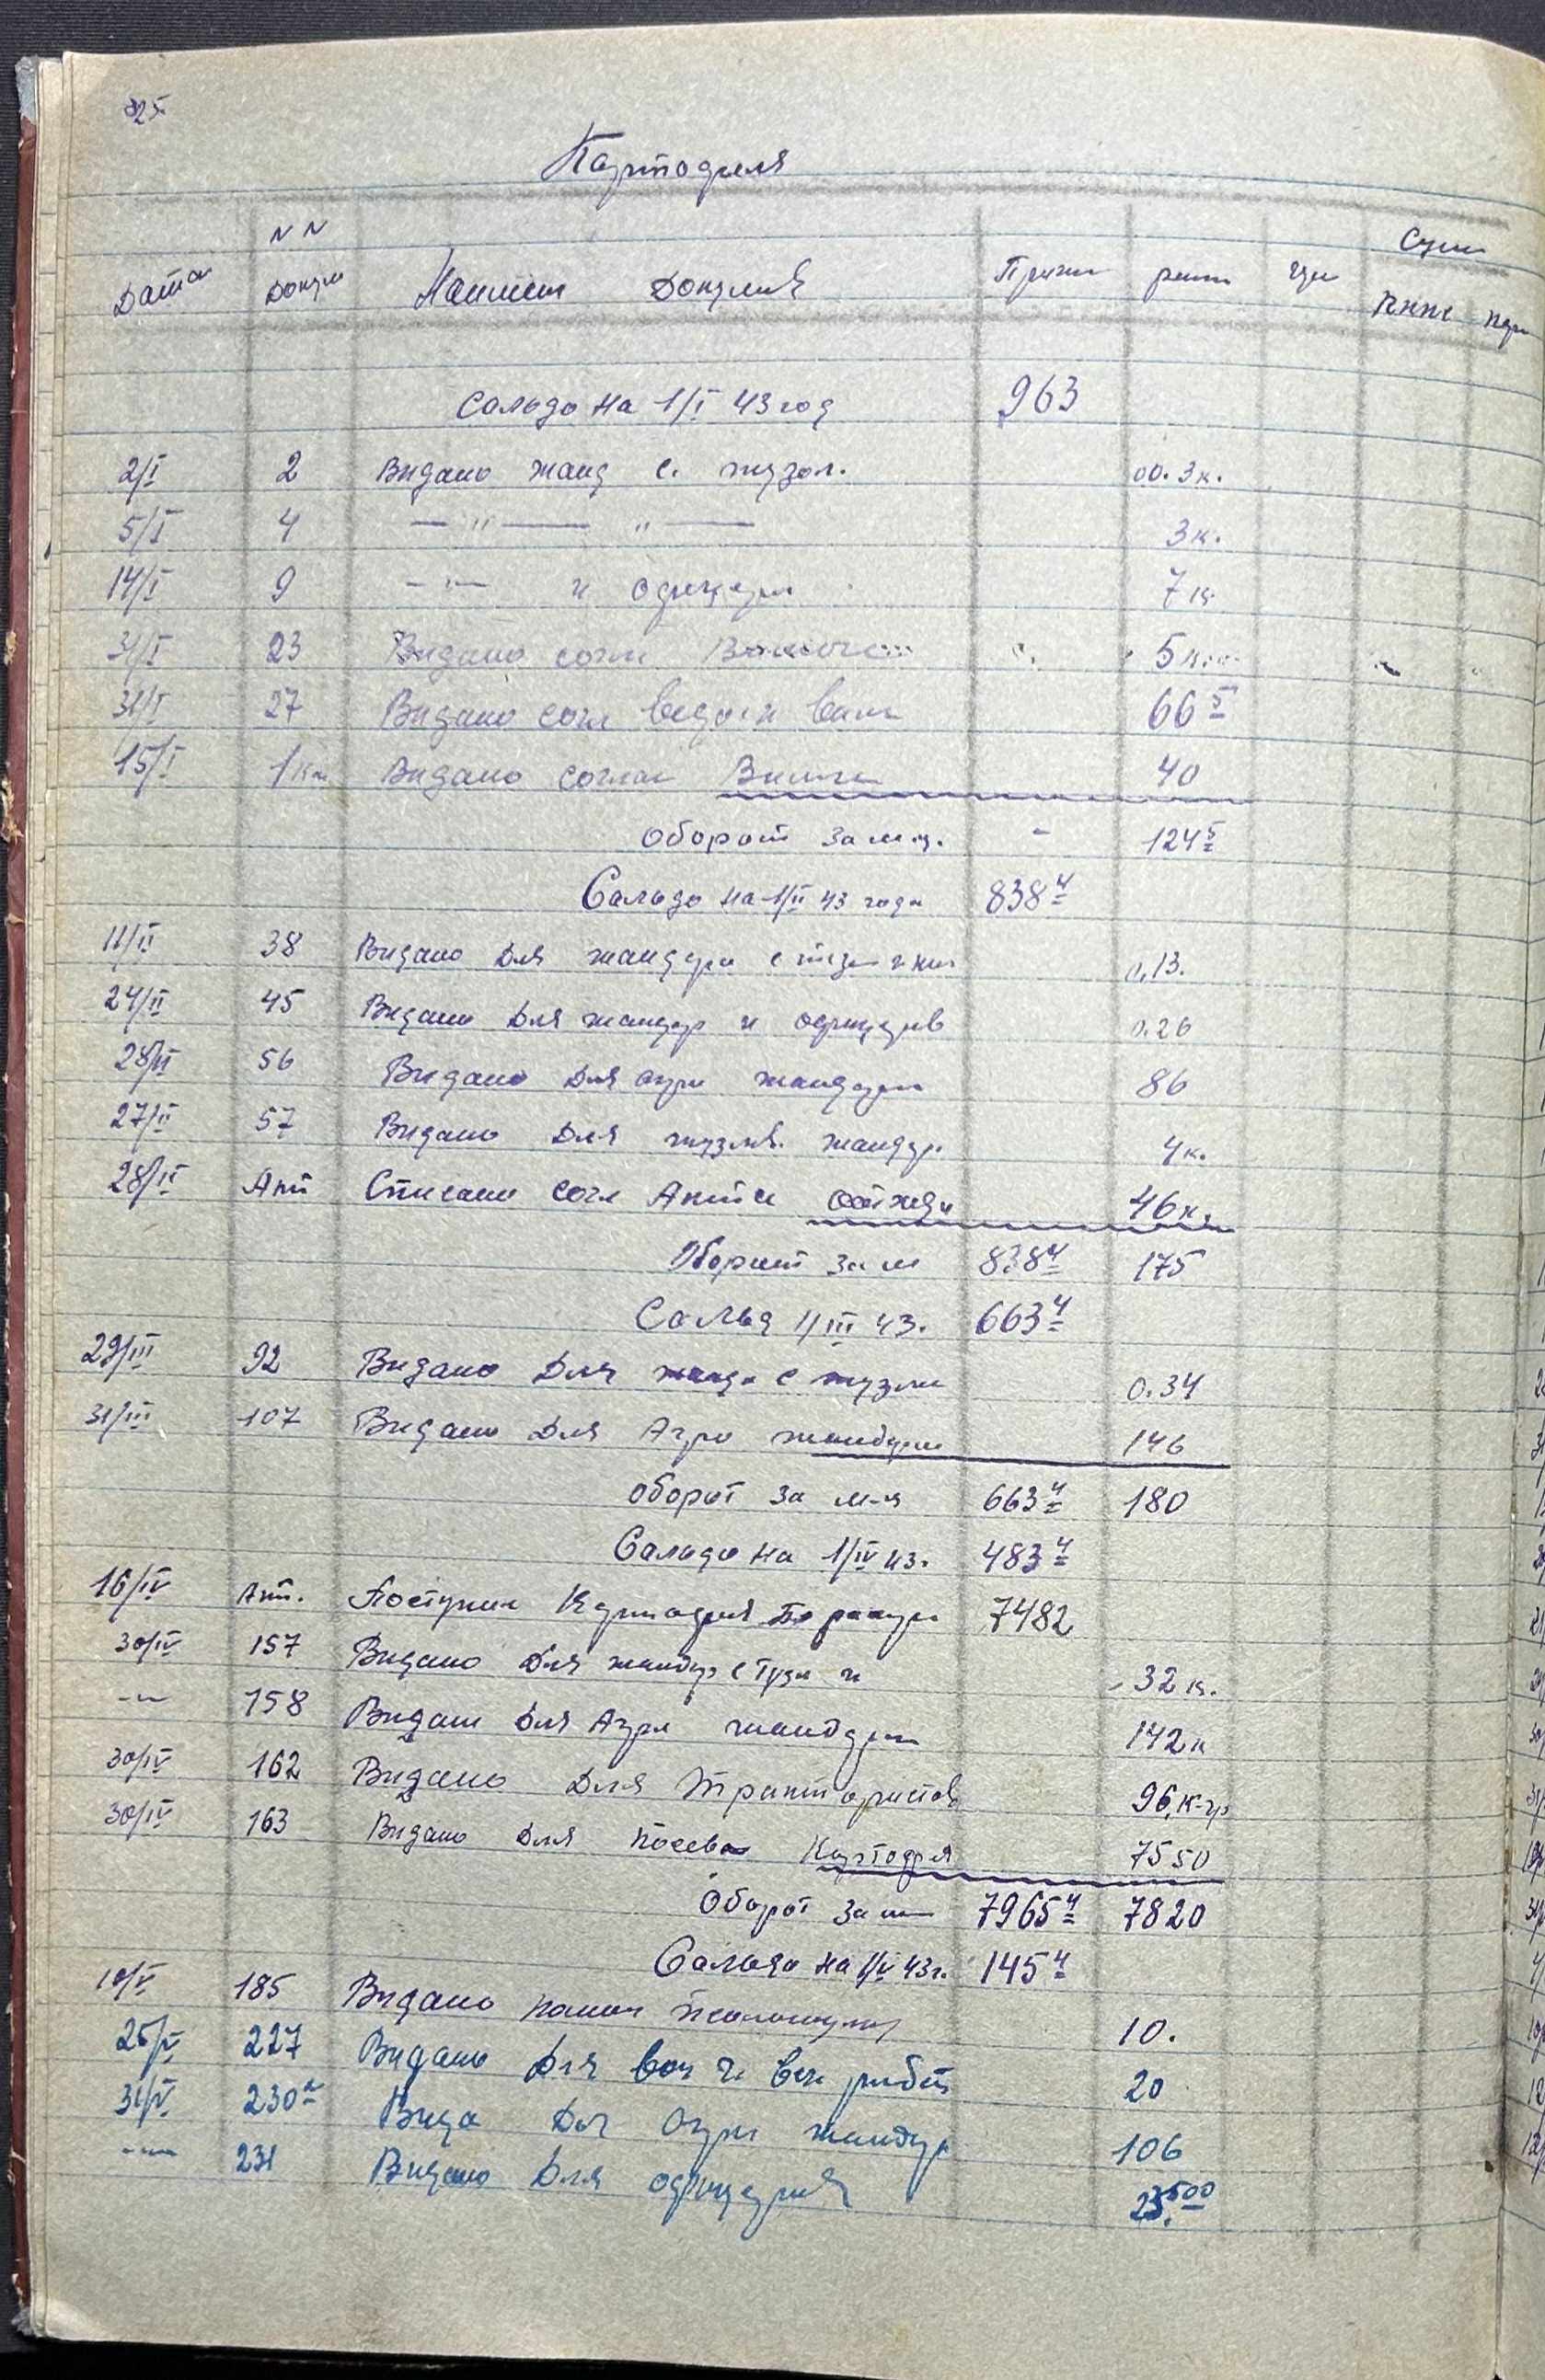 25
Картофля
Дата
N N
Докум
Наимен Докумен
Прих
расх
цен
Сум
Сальдо на 1/I 43 год 963
2/I 2 Видано жанд с. тузол. 00.3к.
5/I 4 — " — " — 3к.
14/I 9 — " — и офицери 7к
31/I 23 Видано согл 5к
31/I 27 Видано согл ведом 66 5
15/I 1 Видано соглас 40
Оборот за м-ц. - 124 5
Сальдо на 1/II 43 года 838 4
11/II 38 Видано для жандари с 0.13.
24/II 45 Видано для жандар и офицеров 0.26
28/II 56 Видано для агри жандари 86
27/II 57 Видано для тузлов. жандар. 4к.
28/II Акт Списано согл Акта отхода 46к.
Оборот за м 838 4 175
Сальд 1/III 43. 663 4
29/III 92 Видано для жанда с тузли 0.34
31/III 107 Видано для Агри жандари 146
Оборот за м-я 663 4 180
Сальдо на 1/IV 43. 483 4
16/IV Акт. Поступил Картофля 7482
30/IV 157 Видано для жандар с Тузл 32к.
-"- 158 Видано для Агри жандари 142к
30/IV 162 Видано для Трактористов 96 к-гр
30/IV 163 Видано для посева Картофля 7550
Оборот за м 7965 4 7820
Сальдо на 1/V 43г. 145 4
10/V 185 Видано 10.
25/V 227 Видано для 20
31/V 230а Вида для агри жандар 106
-"- 231 Видано для офицеров 23.500